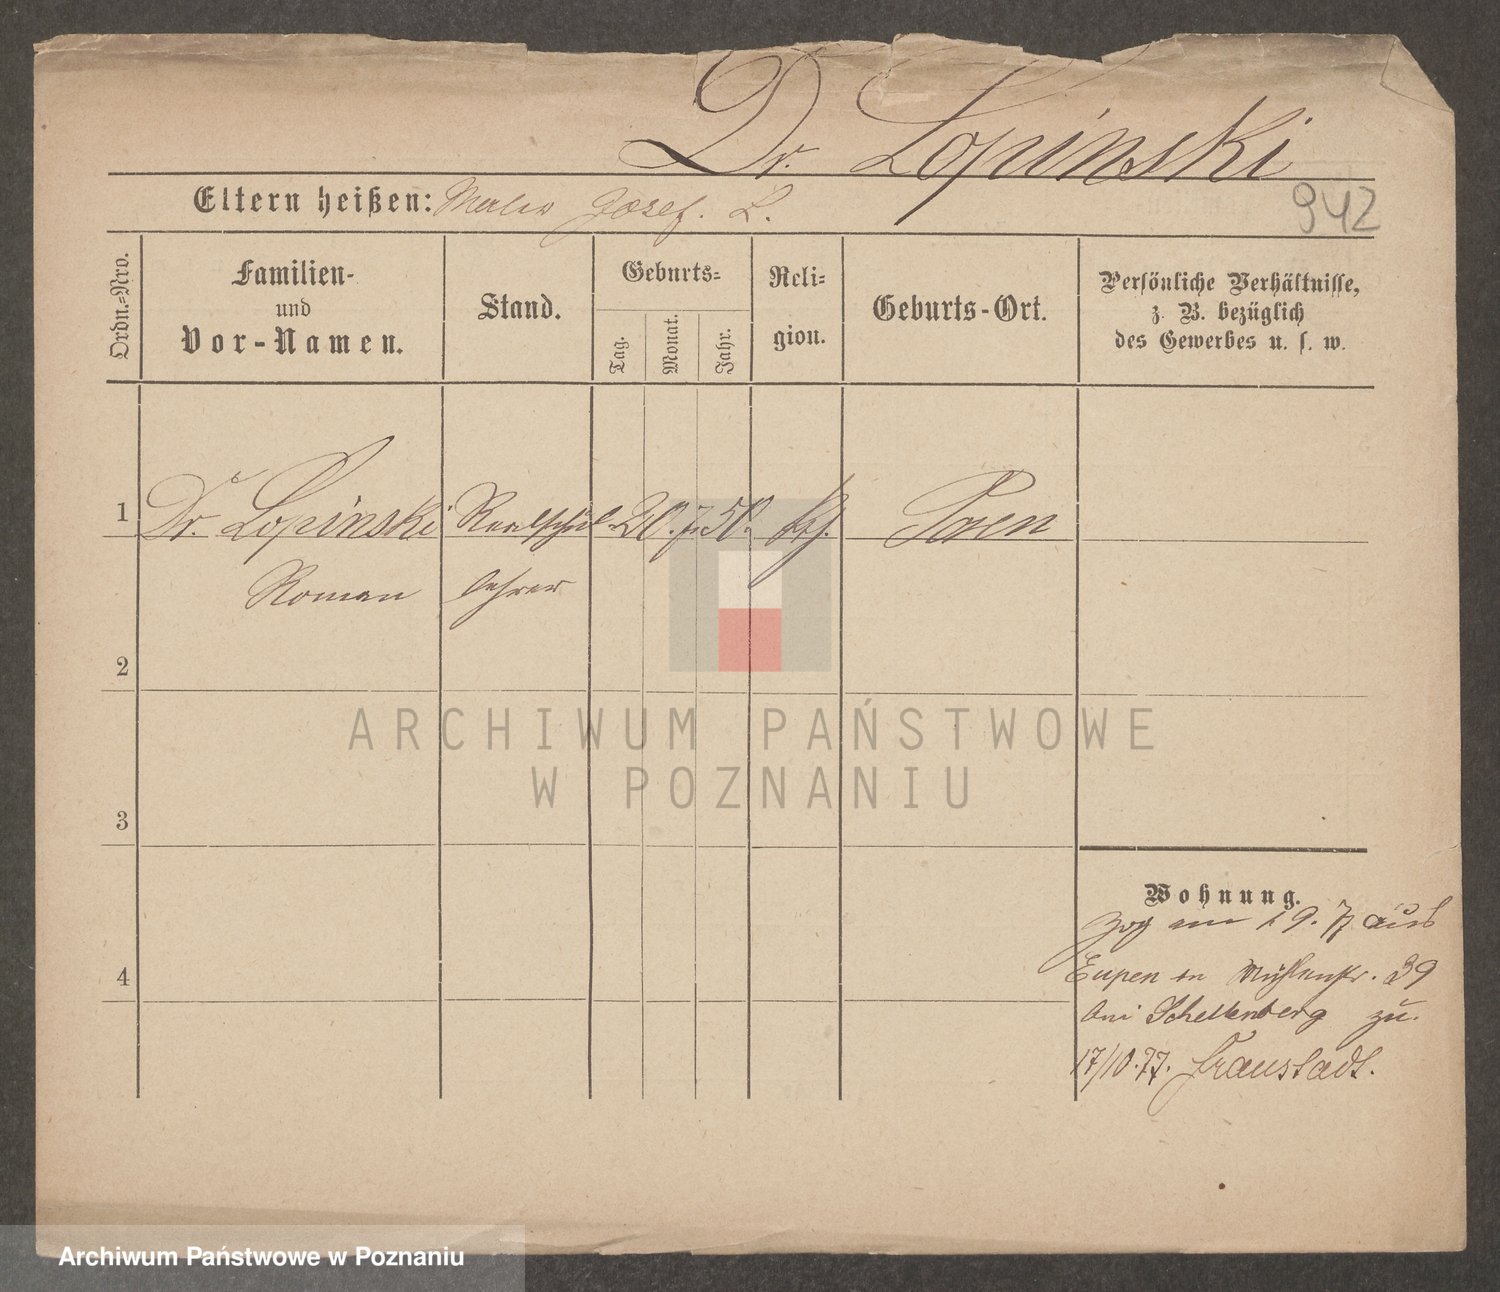 Dr. Lopinski
Eltern heißen: Maler Josef. L.
942
Ordn.=Nro.
Familien-
und
Vor-Namen.
Stand.
Geburts=
Tag.
Monat.
Jahr.
Reli=
gion.
Geburts-Ort.
Persönliche Verhältnisse,
z. B. bezüglich
des Gewerbes u. s. w.
1 Dr. Lopinski Realschul- 20. 7. 50. kth. Posen
Roman lehrer
2
3
4
Wohnung.
zog am 19. 7 aus
Eupen in Mühlenstr. 39
bei Schellenberg zu.
17/10.77. Fraustadt.
ARCHIWUM PAŃSTWOWE
W POZNANIU
Archiwum Państwowe w Poznaniu